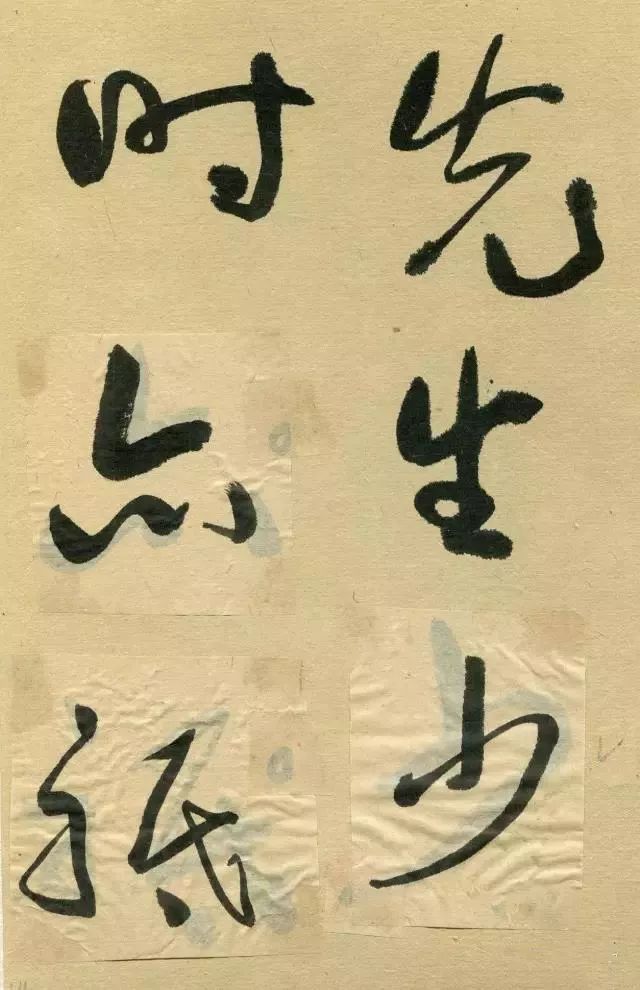 先生少
时亦祗